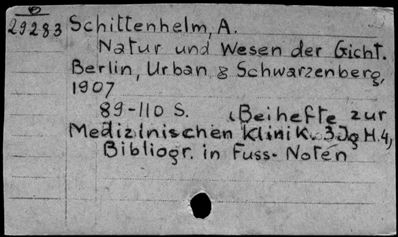 29283 Schittenhelm, A.
Natur und Wesen der Gicht.
Berlin, Urban & Schwarzenberg,
1907
89-110 S. (Beihefte zur
Medizinischen Klinik. 3Jg H.4,
Bibliogr. in Fuss-Noten